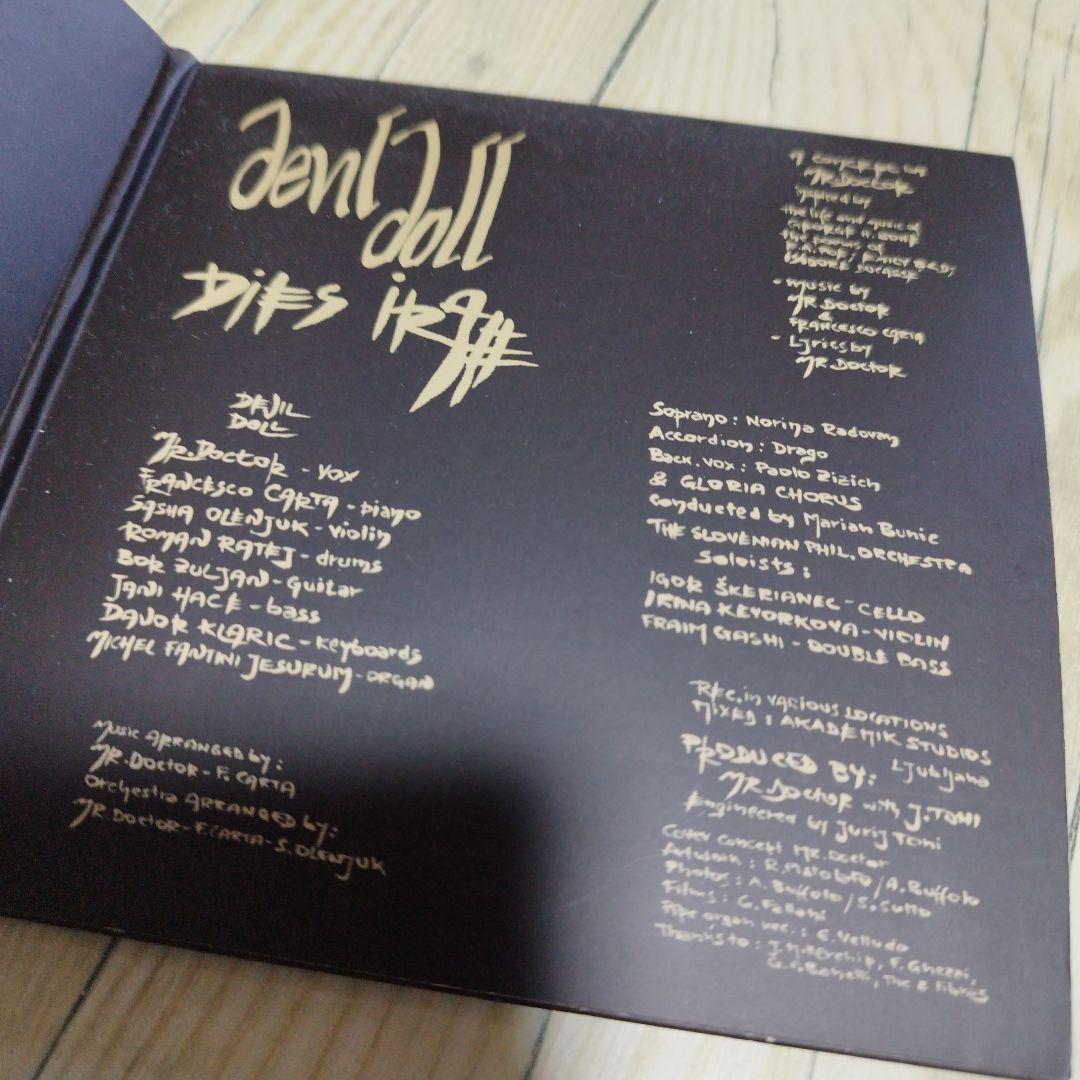 devil
doll
DiES iRAE
DEVIL
DOLL
MR.DOCTOR - VOX
FRANCESCO CARTA - piano
SASHA OLENJUK - violin
ROMAN RATEJ - drums
BOR ZULJAN - Guitar
JANI HACE - bass
DAVOR KLARIC - Keyboards
MICHEL FANTINI JESURUM - ORGAN
MUSIC ARRANGED by:
MR.DOCTOR - F. CARTA
Orchestra ARRANGED by:
MR.DOCTOR - F.CARTA - S.OLENJUK
A concept by
MR.DOCTOR
inspired by
the life and music of
GEORGE H.
the poems of
E.A.POE / EMILY
ISIDORE DUCASSE
- music by
MR.DOCTOR
&
FRANCESCO CARTA
- Lyrics by
MR.DOCTOR
Soprano: Norina Radovan
Accordion: Drago
Back.vox: Paolo Zizich
& GLORIA CHORUS
Conducted by Marian Bunic
THE SLOVENIAN PHIL.ORCHESTRA
Soloists:
IGOR ŠKERIANEC - CELLO
IRINA KEVORKOVA - VIOLIN
FRAIM GASHI - DOUBLE BASS
REC.in VARIOUS LOCATIONS
MIXED: AKADEMIK STUDIOS
Ljubljana
PRODUCED BY:
MR.DOCTOR with J.TONI
Engineered by Jurij Toni
Cover concept Mr.Doctor
Artwork: R. / A.Buffolo
Photos: A.Buffolo / S.Sutto
Films: G.
Pipe organ rec.: E. Velludo
Thanks to: J. F. Ghezzi,
G.C.Bonelli, The